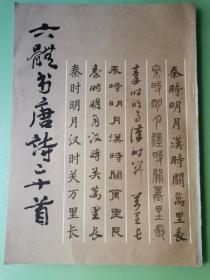 秦時明月漢時關萬里長
秦時明月漢時關萬里長
秦時明月漢時關萬里長
秦時明月漢時關萬里長
秦時明月漢時关萬里長
秦时明月汉时关万里长
六體书唐詩三十首